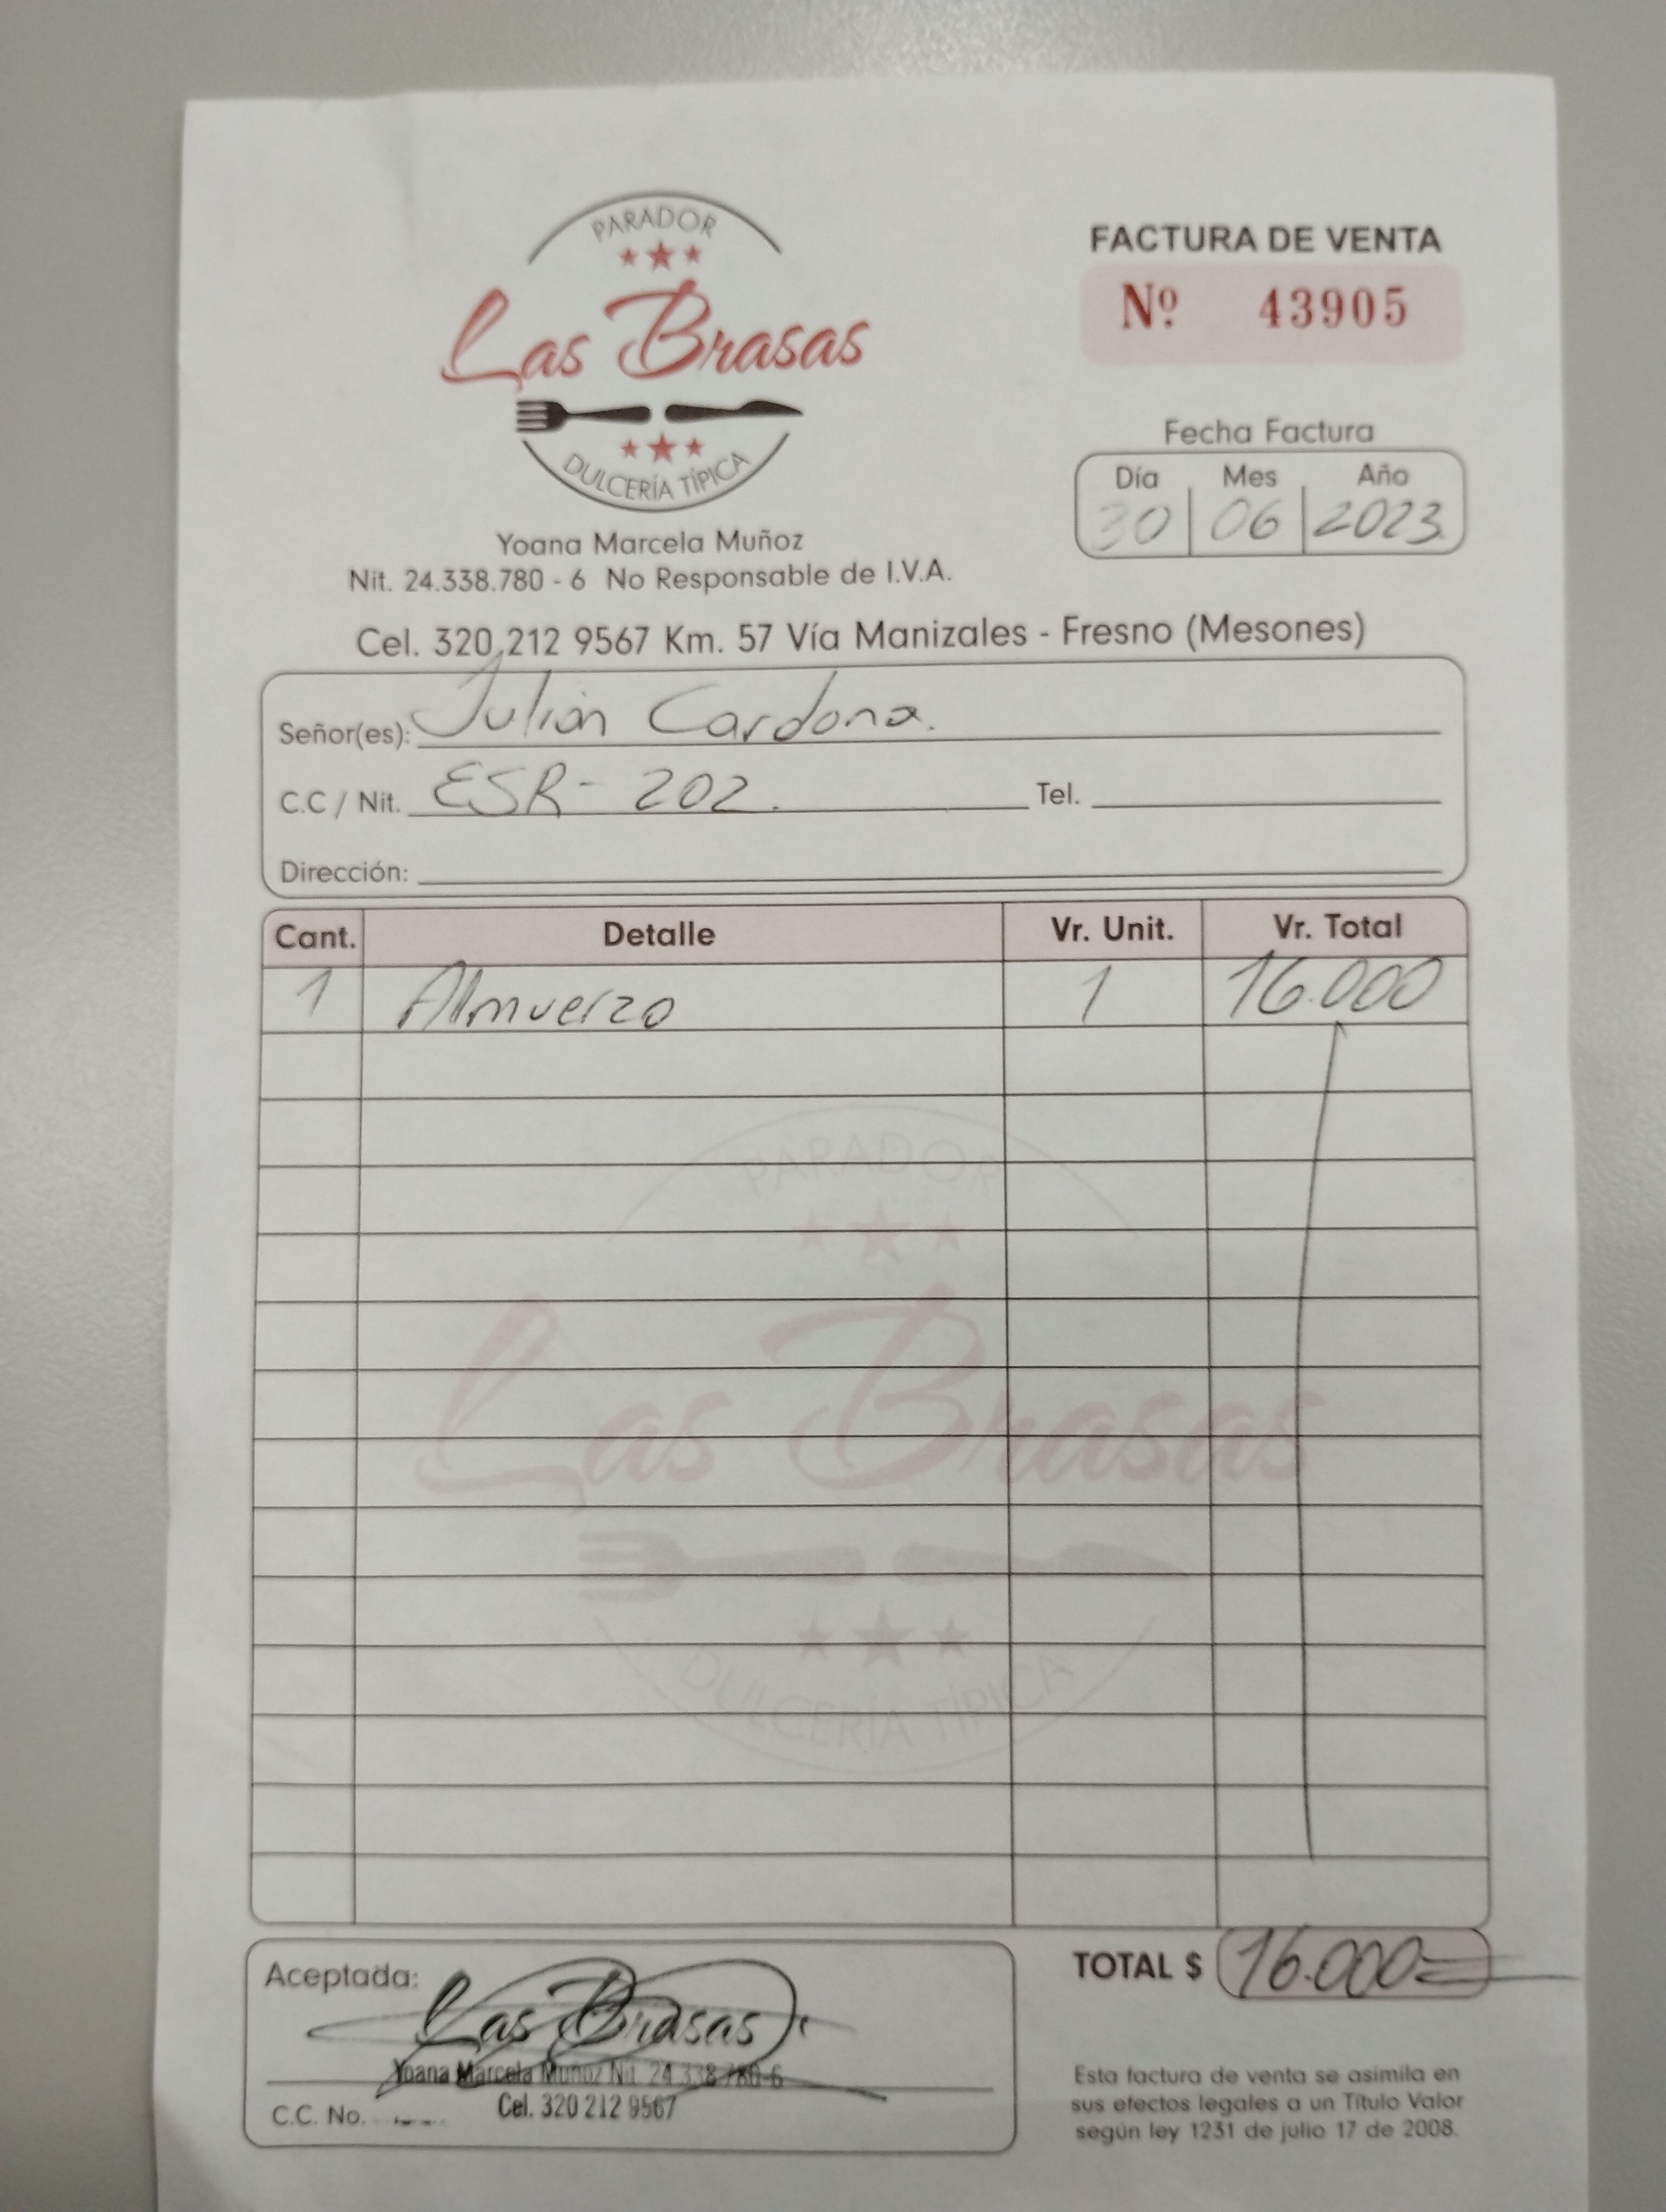 PARADOR
Las Brasas
DULCERÍA TÍPICA
Yoana Marcela Muñoz
Nit. 24.338.780 - 6 No Responsable de I.V.A.
Cel. 320 212 9567 Km. 57 Vía Manizales - Fresno (Mesones)
FACTURA DE VENTA
Nº 43905
Fecha Factura
Día Mes Año
30 06 2023
Señor(es): Julián Cardona.
C.C / Nit. ESR- 202. Tel.
Dirección:
Cant. Detalle Vr. Unit. Vr. Total
1 Almuerzo 1 16.000
PARADOR
Las Brasas
DULCERÍA TÍPICA
Aceptada:
Las Brasas
Yoana Marcela Muñoz Nit. 24.338.780-6
C.C. No. Cel. 320 212 9567
TOTAL $ 16.000=
Esta factura de venta se asimila en
sus efectos legales a un Título Valor
según ley 1231 de julio 17 de 2008.